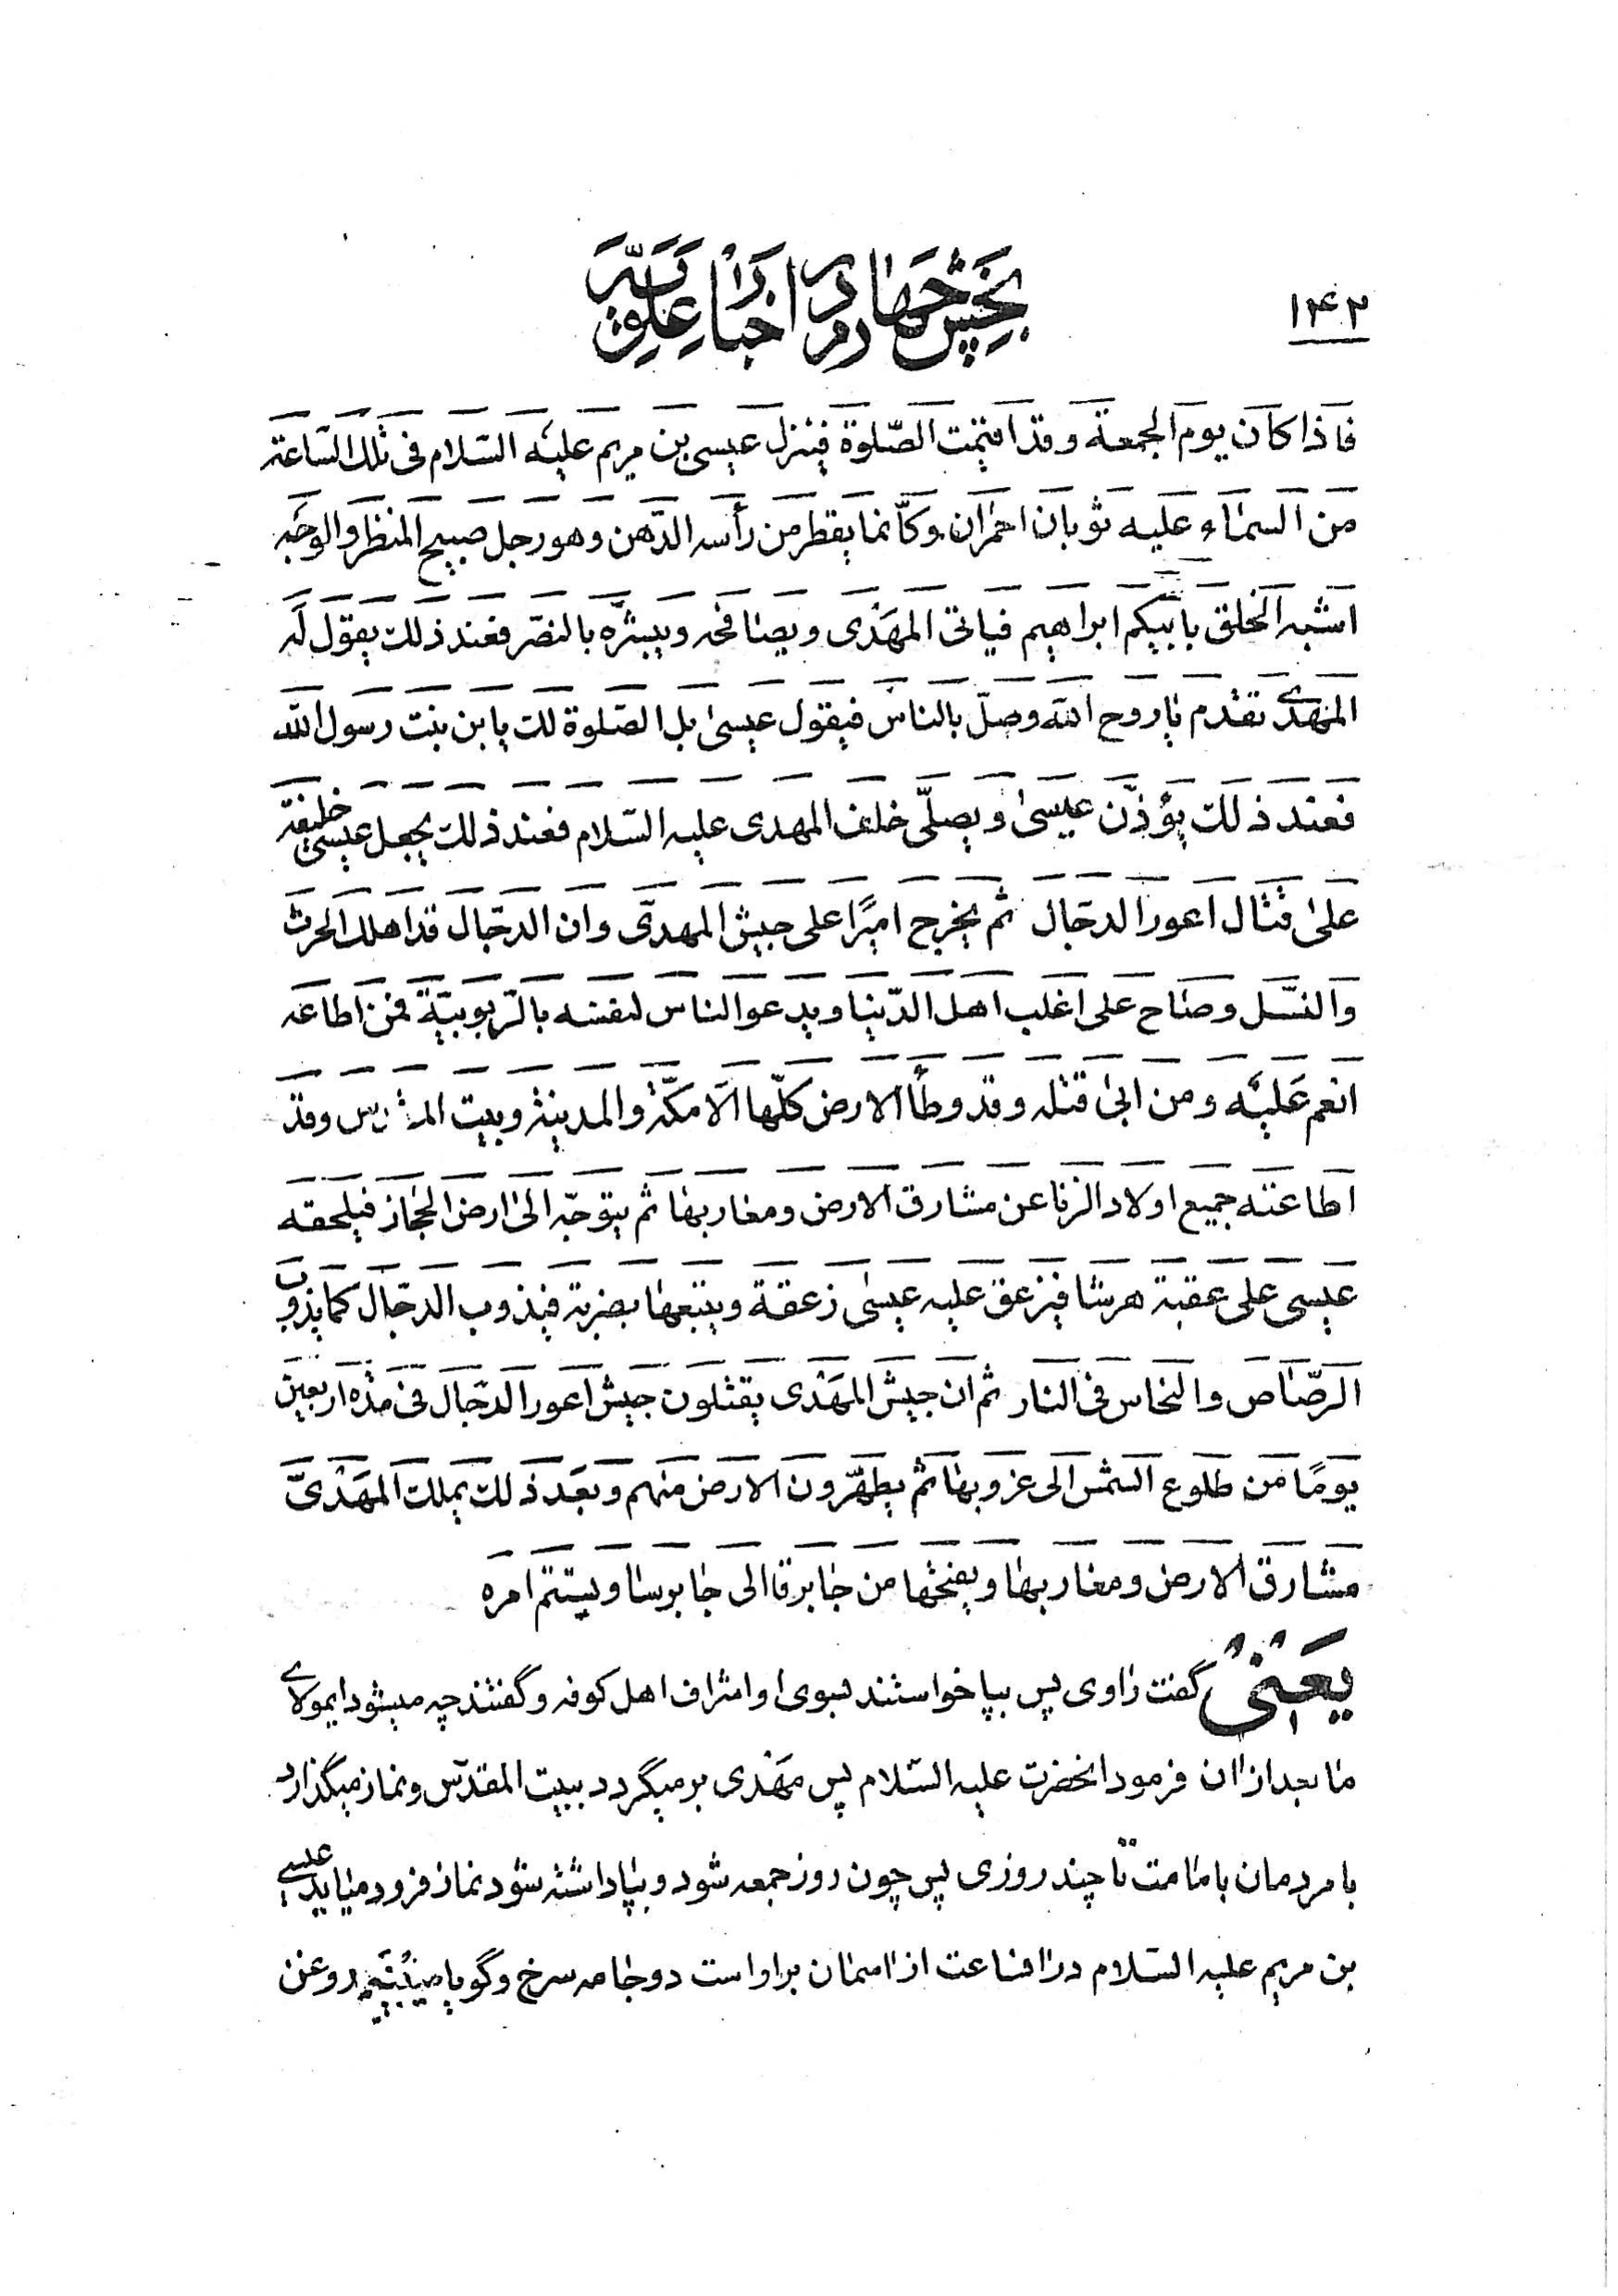 ۱۴۲
بخش چهارم در اخبار علویه
فاذا كان يوم الجمعة وقد اقيمت الصّلوة فينزل عيسى بن مريم عليه السّلام فى تلك السّاعة
من السماء عليه ثوبان احمران وكأنّما يقطر من رأسه الدّهن وهو رجل صبيح المنظر والوجه
اشبه الخلق بابيكم ابراهيم فياتى المهدى ويصافحه ويبشّره بالنصر فعند ذلك يقول له
المهدى تقدم ياروح الله وصلّ بالناس فيقول عيسى بل الصّلوة لك يابن بنت رسول الله
فعند ذلك يؤذّن عيسى ويصلّى خلف المهدى عليه السّلام فعند ذلك يجعل عيسى خليفة
على قتال اعور الدجّال ثم يخرج اميرًا على جيش المهدى وان الدجّال قد اهلك الحرث
والنسل وصاح على اغلب اهل الدّنيا ويدعو الناس لنفسه بالرّبوبيّة فمن اطاعه
انعم عليه ومن ابى قتله وقد وطأ الارض كلّها الّا مكّة والمدينة وبيت المقدس وقد
اطاعته جميع اولاد الزنا عن مشارق الارض ومغاربها ثم يتوجّه الى ارض الحجاز فيلحقه
عيسى على عقبة هرشا فيزعق عليه عيسى زعقة ويتبعها بضربة فيذوب الدجّال كما يذوب
الرّصاص والنحاس فى النار ثم ان جيش المهدى يقتلون جيش اعور الدجّال فى مدة اربعين
يومًا من طلوع الشمس الى غروبها ثم يطهّرون الارض منهم وبعد ذلك يملك المهدىّ
مشارق الارض ومغاربها ويفتحها من جابرقا الى جابرسا ويستتمّ امره
یعنی گفت راوی پس بپا خواستند بسوی او اشراف اهل کوفه و گفتند چه میشود ایمولای
ما بعد از ان فرمود انحضرت علیه السّلام پس مهدی برمیگردد ببیت المقدّس و نماز میگذارد
با مردمان بامامت تا چند روزی پس چون روز جمعه شود و بپا داشته شود نماز فرود میاید عیسی
بن مریم علیه السّلام در انساعت از اسمان بر او است دو جامه سرخ و گویا روغن